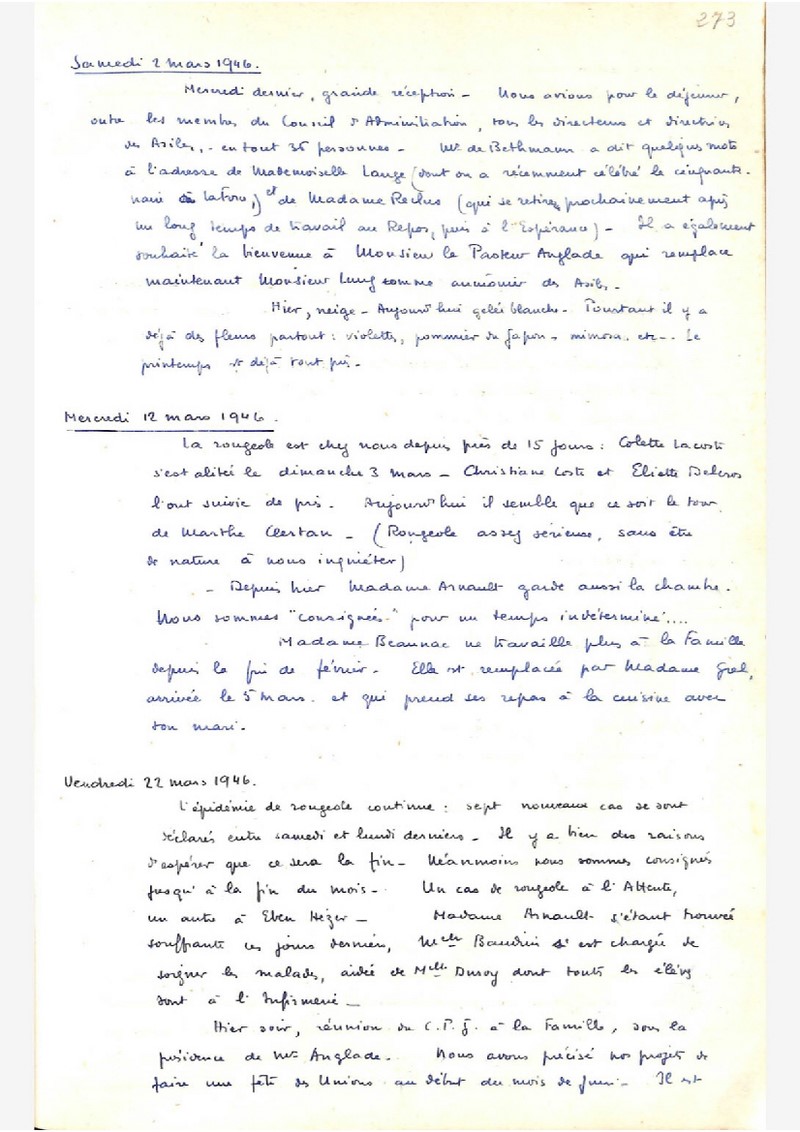 273
Samedi 2 mars 1946.
Mercredi dernier, grande réception - Nous avions pour le déjeuner,
outre les membres du Conseil d'Administration, tous les directeurs et directrices
des Asiles, - en tout 36 personnes - Mr de Bethmann a dit quelques mots
à l'adresse de Mademoiselle Lange (dont on a récemment célébré le cinquante-
naire à Laforce,) et de Madame Reclus (qui se retire prochainement après
un long temps de travail au Repos, puis à l'Espérance) - Il a également
souhaité la bienvenue à Monsieur le Pasteur Anglade qui remplace
maintenant Monsieur Lung comme aumônier des Asiles -
Hier, neige - Aujourd'hui gelée blanche - Pourtant il y a
déjà des fleurs partout : violettes, pommier du Japon - mimosa. etc -. Le
printemps est déjà tout près -
Mercredi 12 mars 1946.
La rougeole est chez nous depuis près de 15 jours : Colette Lacoste
s'est alitée le dimanche 3 mars - Christiane Coste et Eliette Delcros
l'ont suivie de près. Aujourd'hui il semble que ce soit le tour
de Marthe Clestan - (Rougeole assez sérieuse, sans être
de nature à nous inquiéter)
- Depuis hier Madame Arnault garde aussi la chambre.
Nous sommes "consignées" pour un temps indéterminé....
Madame Beaunac ne travaille plus à la Famille
depuis la fin de février - Elle est remplacée par Madame
arrivée le 5 mars. et qui prend ses repas à la cuisine avec
son mari.
Vendredi 22 mars 1946.
l'épidémie de rougeole continue : sept nouveaux cas se sont
déclarés entre samedi et lundi derniers - Il y a bien des raisons
d'espérer que ce sera la fin - Néanmoins nous sommes consignés
jusqu'à la fin du mois - Un cas de rougeole à l'Attente,
un autre à Eben Hézer - Madame Arnault s'étant trouvée
souffrante ces jours derniers, Melle Baudrin s'est chargée de
soigner les malades, aidée de Melle Duroy dont toutes les élèves
sont à l'Infirmerie -
Hier soir, réunion du C.P.J. à la Famille, sous la
présidence de Mr Anglade. Nous avons précisé nos projets de
faire une fête des Unions au début du mois de Juin - Il est